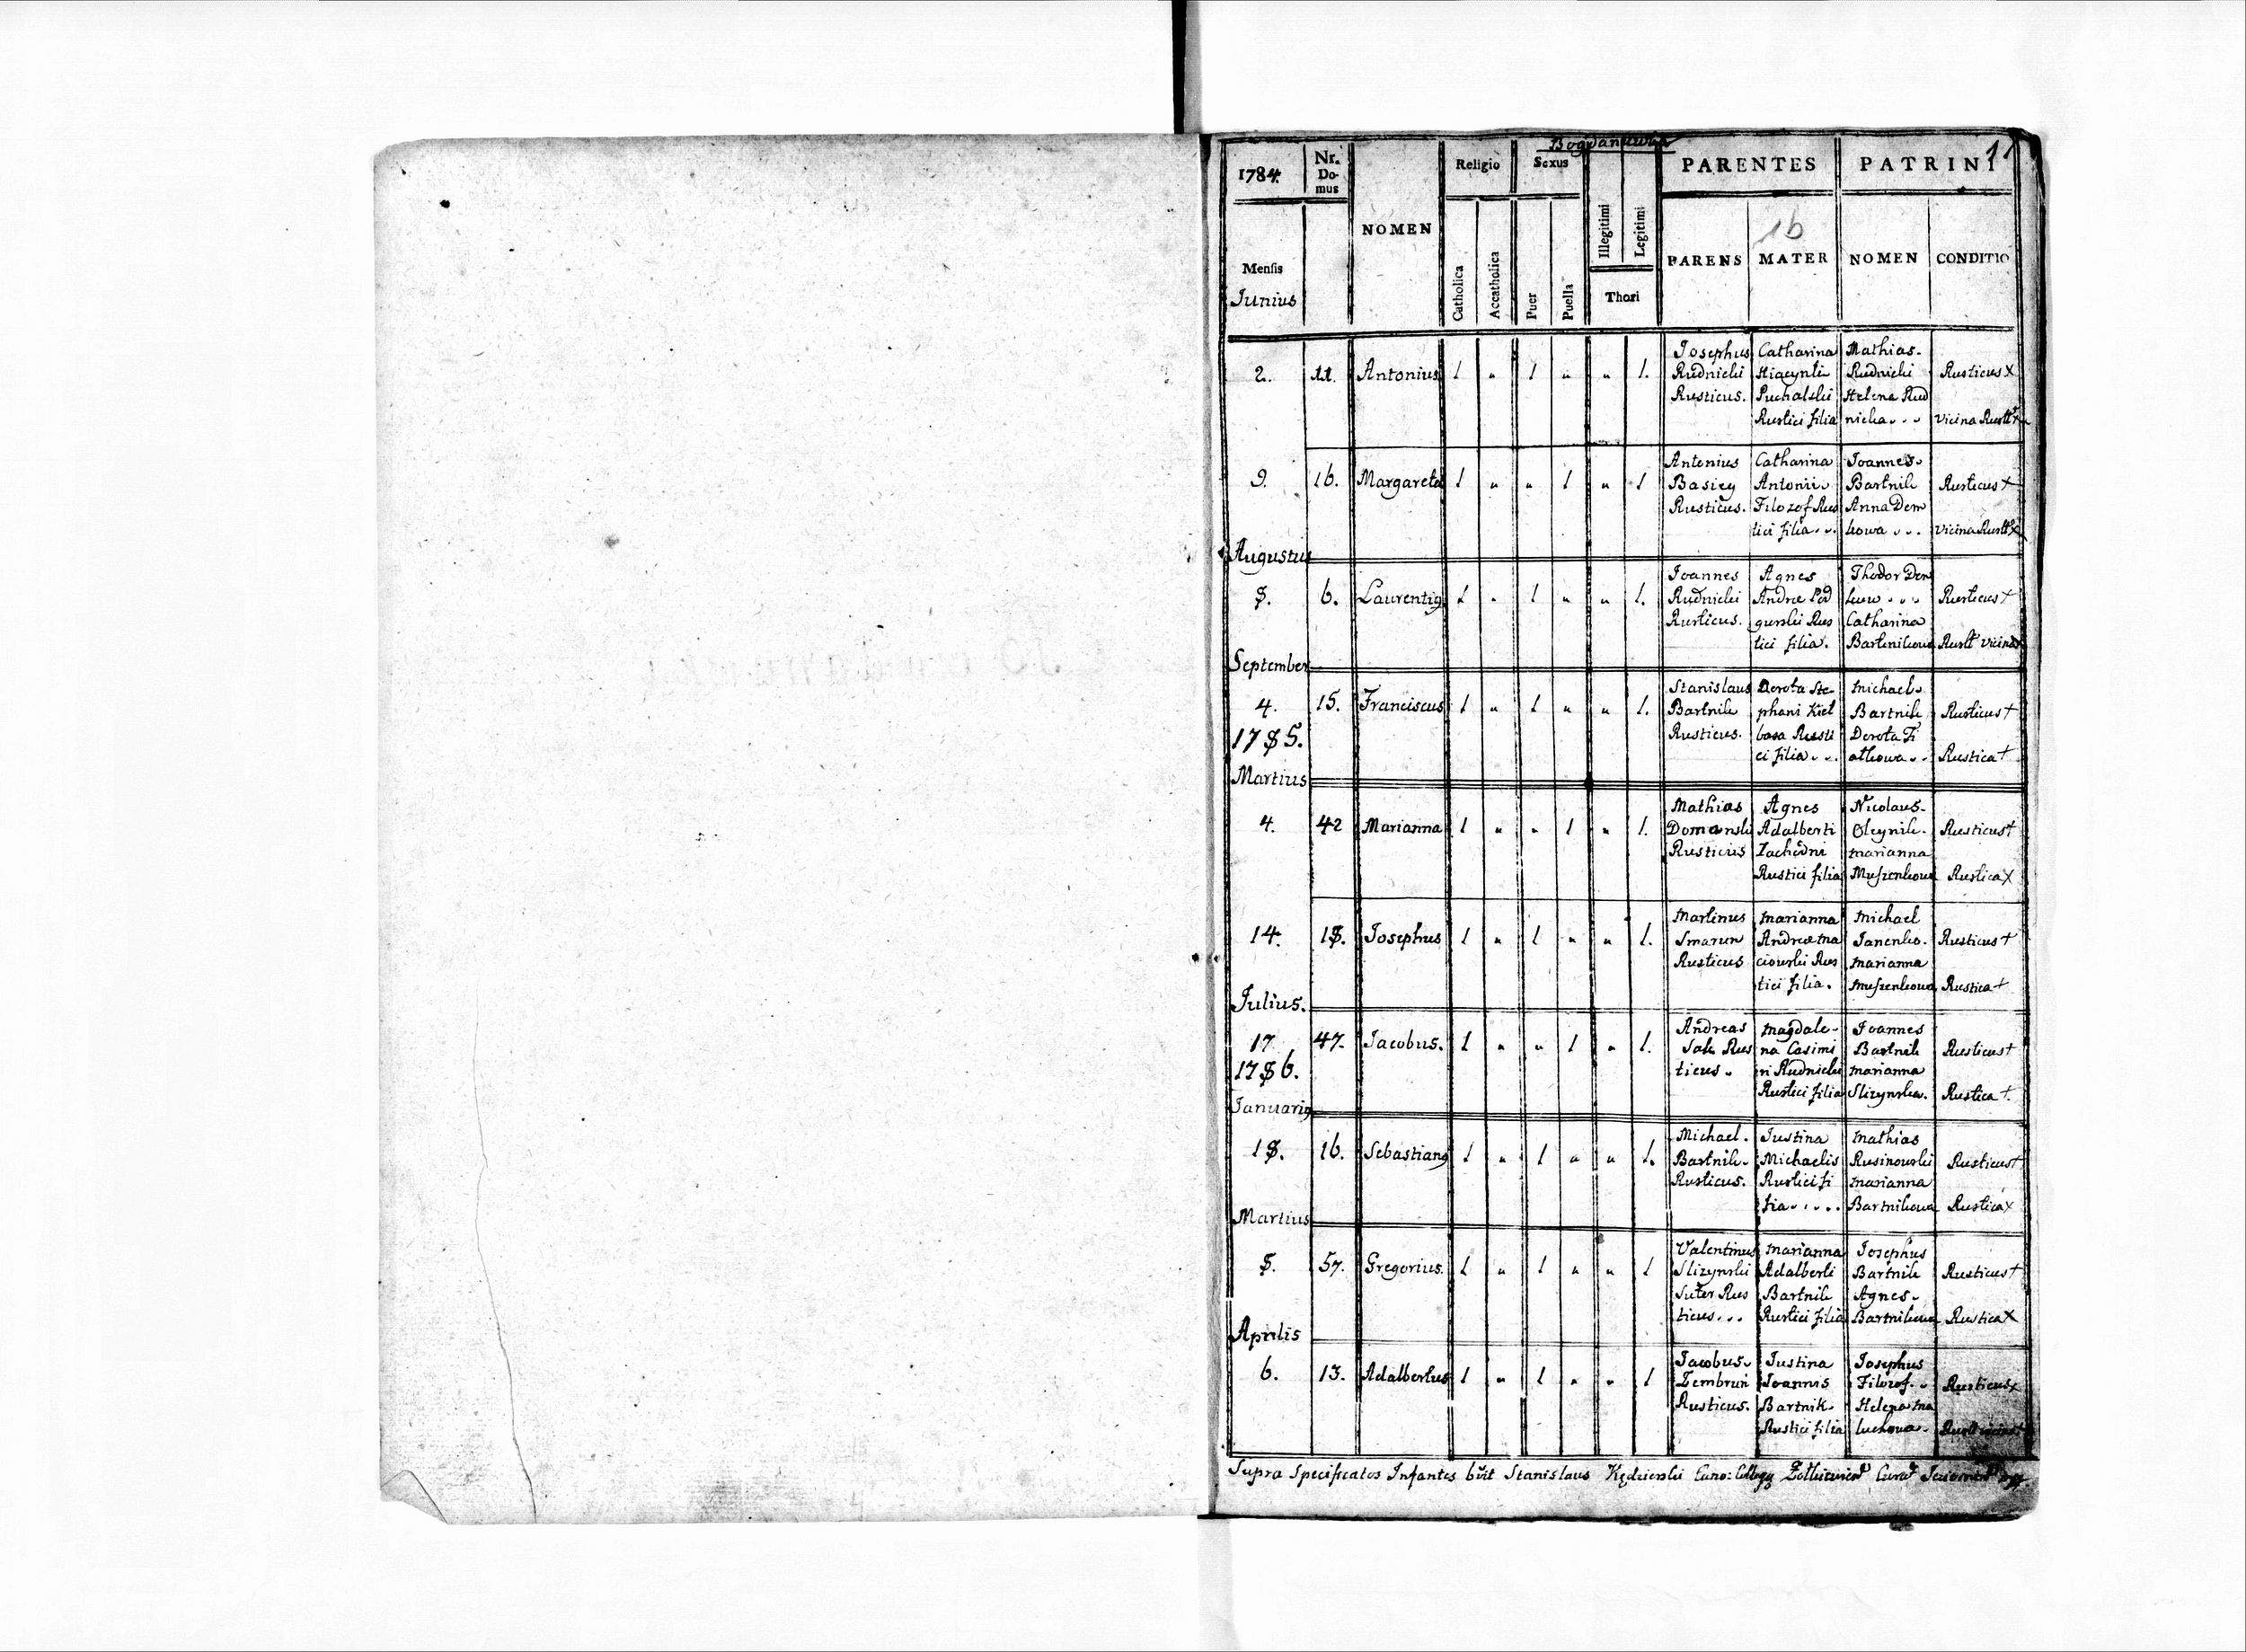 Bogdanuwka
11
1784.
Nr. Domus
NOMEN
Religio
Sexus
PARENTES
PATRINI
16
Mensis
Junius
Catholica
Accatholica
Puer
Puella
Illegitimi
Legitimi
Thori
PARENS
MATER
NOMEN
CONDITIO
2. 11. Antonius 1 " 1 " " 1.
Josephus Catharina Mathias
Rudnicki Hiacynti Rudnicki Rusticus x
Rusticus. Puchalski Helena Rud
Rustici filia nicka . . vicina Rustt x
9. 16. Margareta 1 " " 1 " 1
Antonius Catharina Joannes
Basiey Antonii Bartnik Rusticus x
Rusticus. Filozof Rus Anna Dem
tici filia . . kowa . . vicina Rustt x
Augustus
8. 6. Laurentig 1 " 1 " " 1.
Joannes Agnes Thodor Dem
Rudnicki Andreæ Pod kuw . . . Rusticus +
Rusticus. gurski Rus Catharina
tici filia. Bartnikowa Rustt vicina
September
4. 15. Franciscus 1 " 1 " " 1.
Stanislaus Dorota Ste- Michael
Bartnik phani Kiel Bartnik Rusticus +
Rusticus. basa Rusti Dorota Fi
ci filia . . . Rustica +
1785.
Martius
4. 42 Marianna 1 " " 1 " 1.
Mathias Agnes Nicolaus
Domanski Adalberti Oleynik. Rusticus +
Rusticus Zachodni Marianna
Rustici filia Rustica x
14. 18. Josephus 1 " 1 " " 1.
Martinus Marianna Michael
Smarun Andreæ Ma Janenko. Rusticus +
Rusticus ciowski Rus Marianna
tici filia. Rustica +
Julius.
17 47. Jacobus. 1 " " 1 " 1.
Andreas Magdale- Joannes
Sak Rus na Casimi Bartnik Rusticus +
ticus . ri Rudnicki Marianna
Rustici filia Slizynska. Rustica +.
1786.
Januarig
18. 16. Sebastiang 1 " 1 " " 1.
Michael. Justina Mathias
Bartnik. Michaelis Rusinowski Rusticus +
Rusticus. Rustici fi Marianna
lia . . . . Bartnikowa Rustica x
Martius
8. 57. Gregorius. 1 " 1 " " 1
Valentinus Marianna Josephus
Slizynski Adalberti Bartnik Rusticus +
Suter Rus Bartnik Agnes.
ticus . . . Rustici filia Bartnikowa Rustica x
Aprilis
6. 13. Adalbertus 1 " 1 " " 1
Jacobus. Justina Josephus
Zembrun Joannis Filozof . . Rusticus x
Rusticus. Bartnik. Helena Ma
Rustici filia
Supra Specificatos Infantes bũit Stanislaus Kędzierski